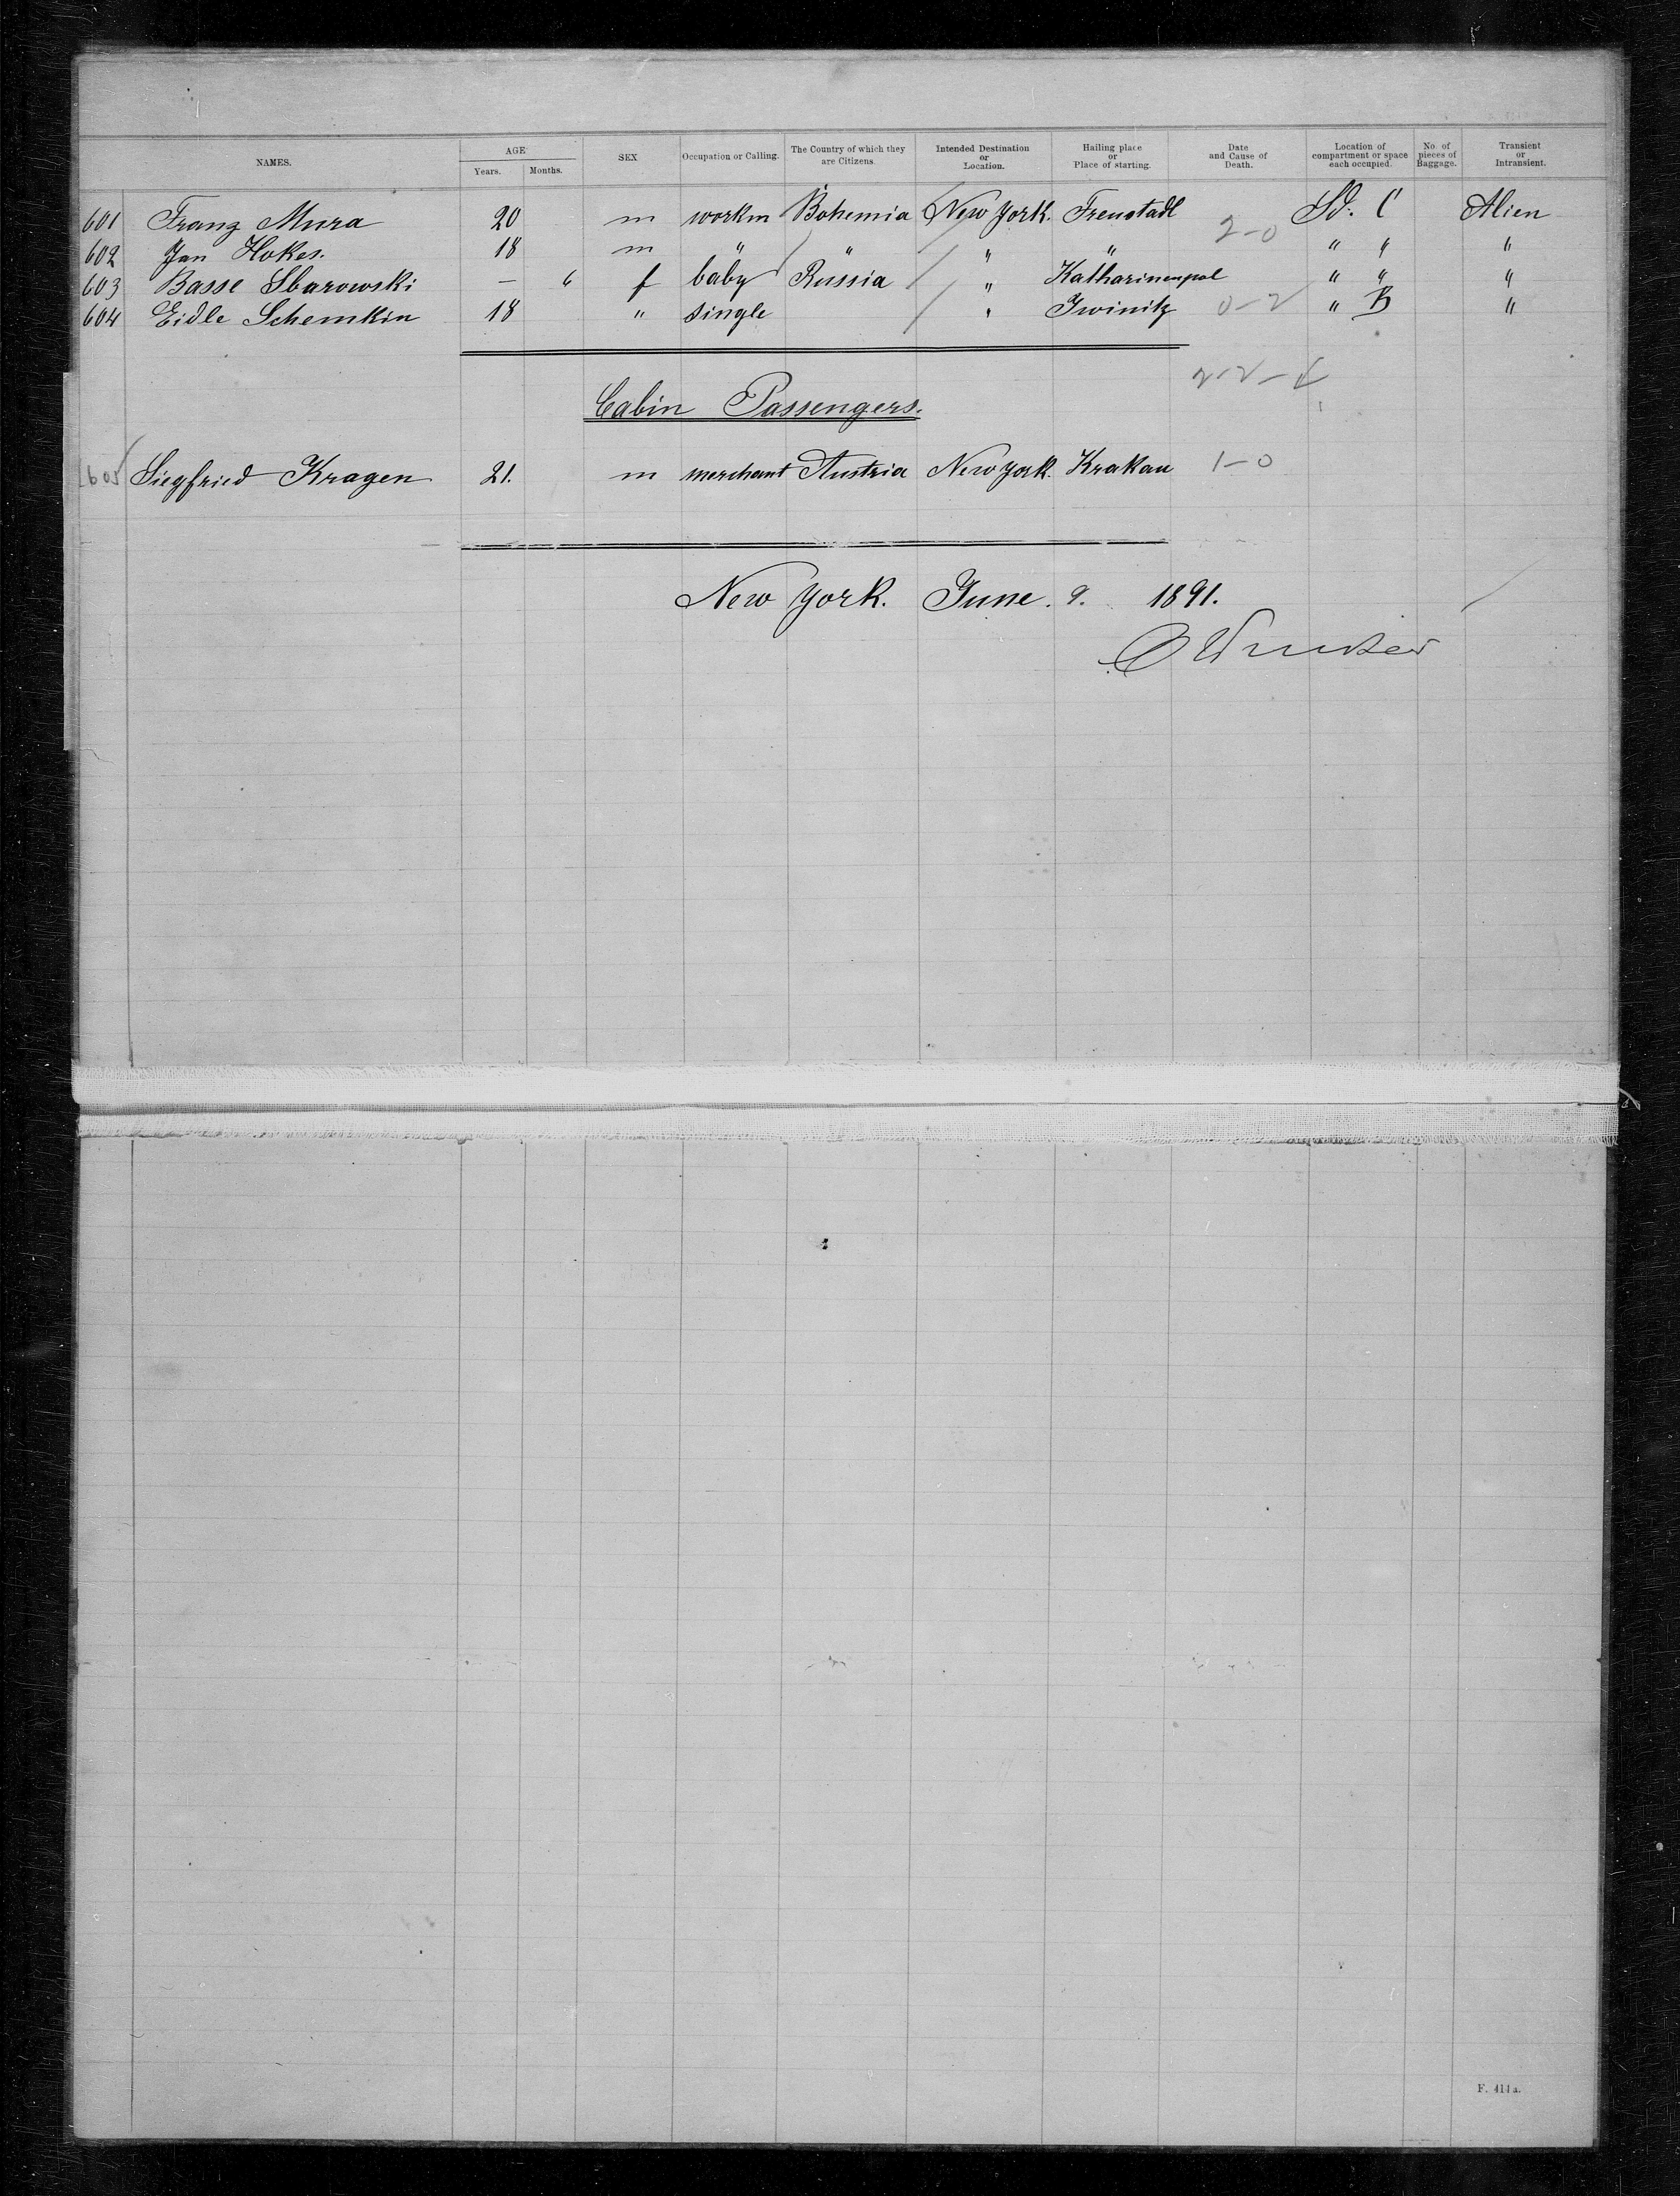 NAMES. AGE Years. Months. SEX Occupation or Calling. The Country of which they are Citizens. Intended Destination or Location. Hailing place or Place of starting. Date and Cause of Death. Location of compartment or space each occupied. No. of pieces of Baggage. Transient or Intransient.
601 Franz Mura 20 m workm Bohemia New York. Frenstadl 2-0 Sd. C Alien
602 Jan Hokes. 18 m " " " " " " "
603 Basse Sbarowski — " f baby Russia " Katharinenpol " " "
604 Eidle Schemkin 18 " single " Iwinitz 0-2 " B "
2-2-
Cabin Passengers.
605 Siegfried Kragen 21. m merchant Austria New York. Krakau 1-0
New York. June. 9. 1891.
F. 411a.